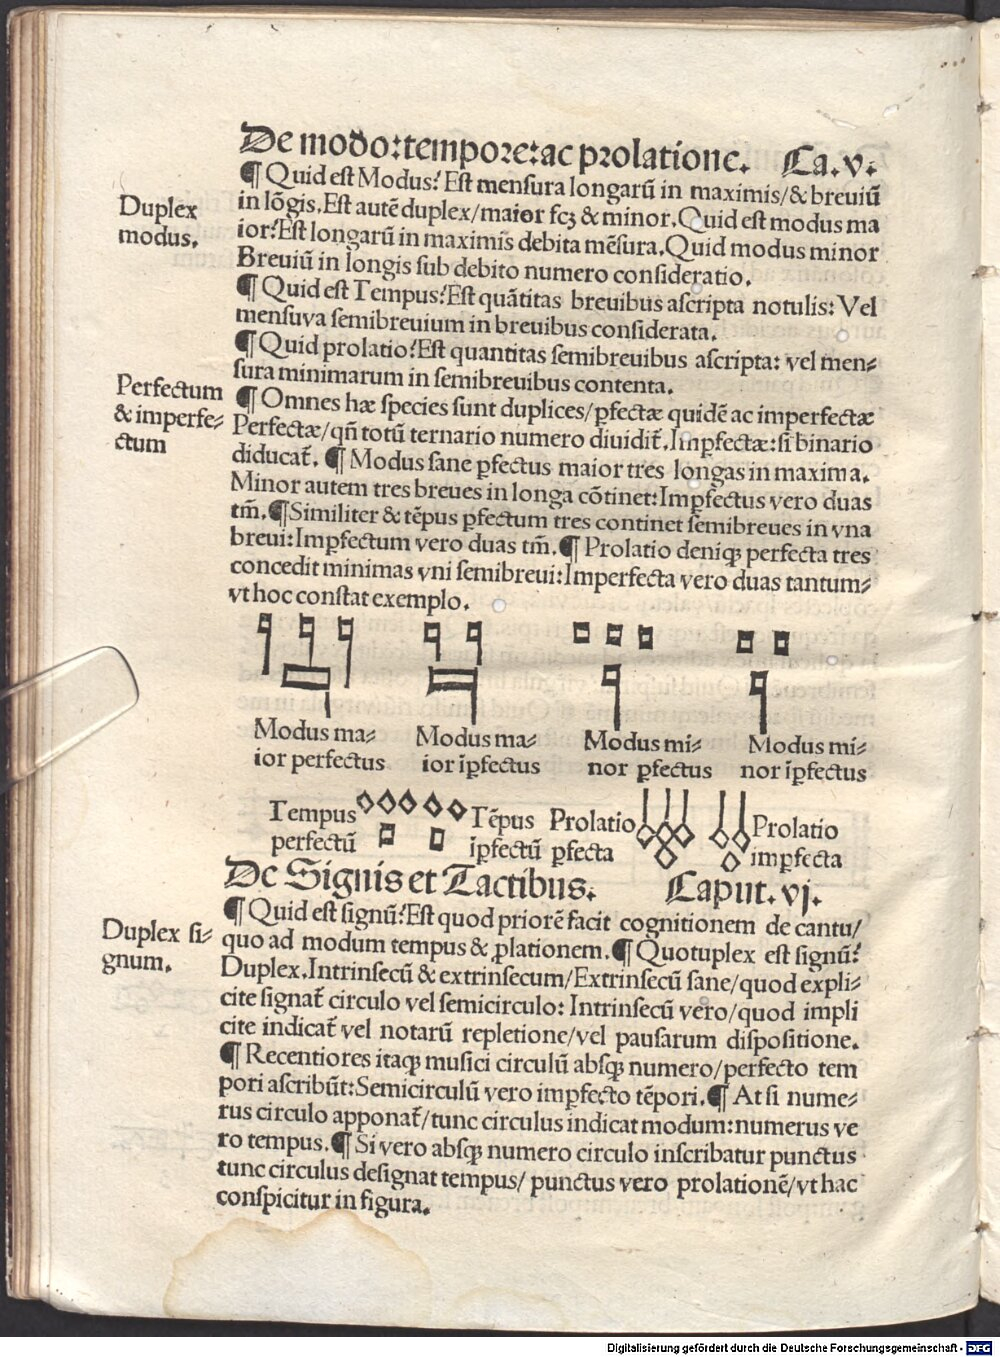 De modo:tempore:ac prolatione. Ca.v.
¶ Quid est Modus? Est mensura longarũ in maximis/& breuiũ
in lõgis. Est autẽ duplex/maior scꝫ & minor. Quid est modus ma
ior? Est longarũ in maximis debita mẽsura. Quid modus minor
Breuiũ in longis sub debito numero consideratio.
Duplex
modus.
¶ Quid est Tempus? Est quãtitas breuibus ascripta notulis: Vel
mensuva semibreuium in breuibus considerata.
¶ Quid prolatio? Est quantitas semibreuibus ascripta: vel men⸗
sura minimarum in semibreuibus contenta.
¶ Omnes hæ species sunt duplices/ꝑfectæ quidẽ ac imperfectæ
Perfectæ/qñ totũ ternario numero diuidit̃. Imꝑfectæ: si binario
diducat̃. ¶ Modus sane ꝑfectus maior tres longas in maxima.
Perfectum
& imperfe⸗
ctum
Minor autem tres breues in longa cõtinet: Imꝑfectus vero duas
tm̃. ¶ Similiter & tẽpus ꝑfectum tres continet semibreues in vna
breui: Imꝑfectum vero duas tm̃. ¶ Prolatio deniqꝫ perfecta tres
concedit minimas vni semibreui: Imperfecta vero duas tantum⸗
vt hoc constat exemplo.
Modus ma⸗
ior perfectus
Modus ma⸗
ior ĩꝑfectus
Modus mi⸗
nor ꝑfectus
Modus mi⸗
nor ĩꝑfectus
Tempus
perfectũ
Tẽpus
ĩꝑfectũ
Prolatio
ꝑfecta
Prolatio
imꝑfecta
De Signis et Tactibus. Caput. vj.
¶ Quid est signũ? Est quod priorẽ facit cognitionem de cantu/
quo ad modum tempus & ꝓlationem. ¶ Quotuplex est signũ?
Duplex si⸗
gnum.
Duplex. Intrinsecũ & extrinsecum/Extrinsecũ sane/quod expli⸗
cite signat̃ circulo vel semicirculo: Intrinsecũ vero/quod impli
cite indicat̃ vel notarũ repletione/vel pausarum dispositione.
¶ Recentiores itaqꝫ musici circulũ absqꝫ numero/perfecto tem
pori ascribũt: Semicirculũ vero imꝑfecto tẽpori. ¶ At si nume⸗
rus circulo apponat̃/tunc circulus indicat modum: numerus ve
ro tempus. ¶ Si vero absqꝫ numero circulo inscribatur punctus
tunc circulus designat tempus/ punctus vero prolationẽ/vt hac
conspicitur in figura.
Digitalisierung gefördert durch die Deutsche Forschungsgemeinschaft - DFG